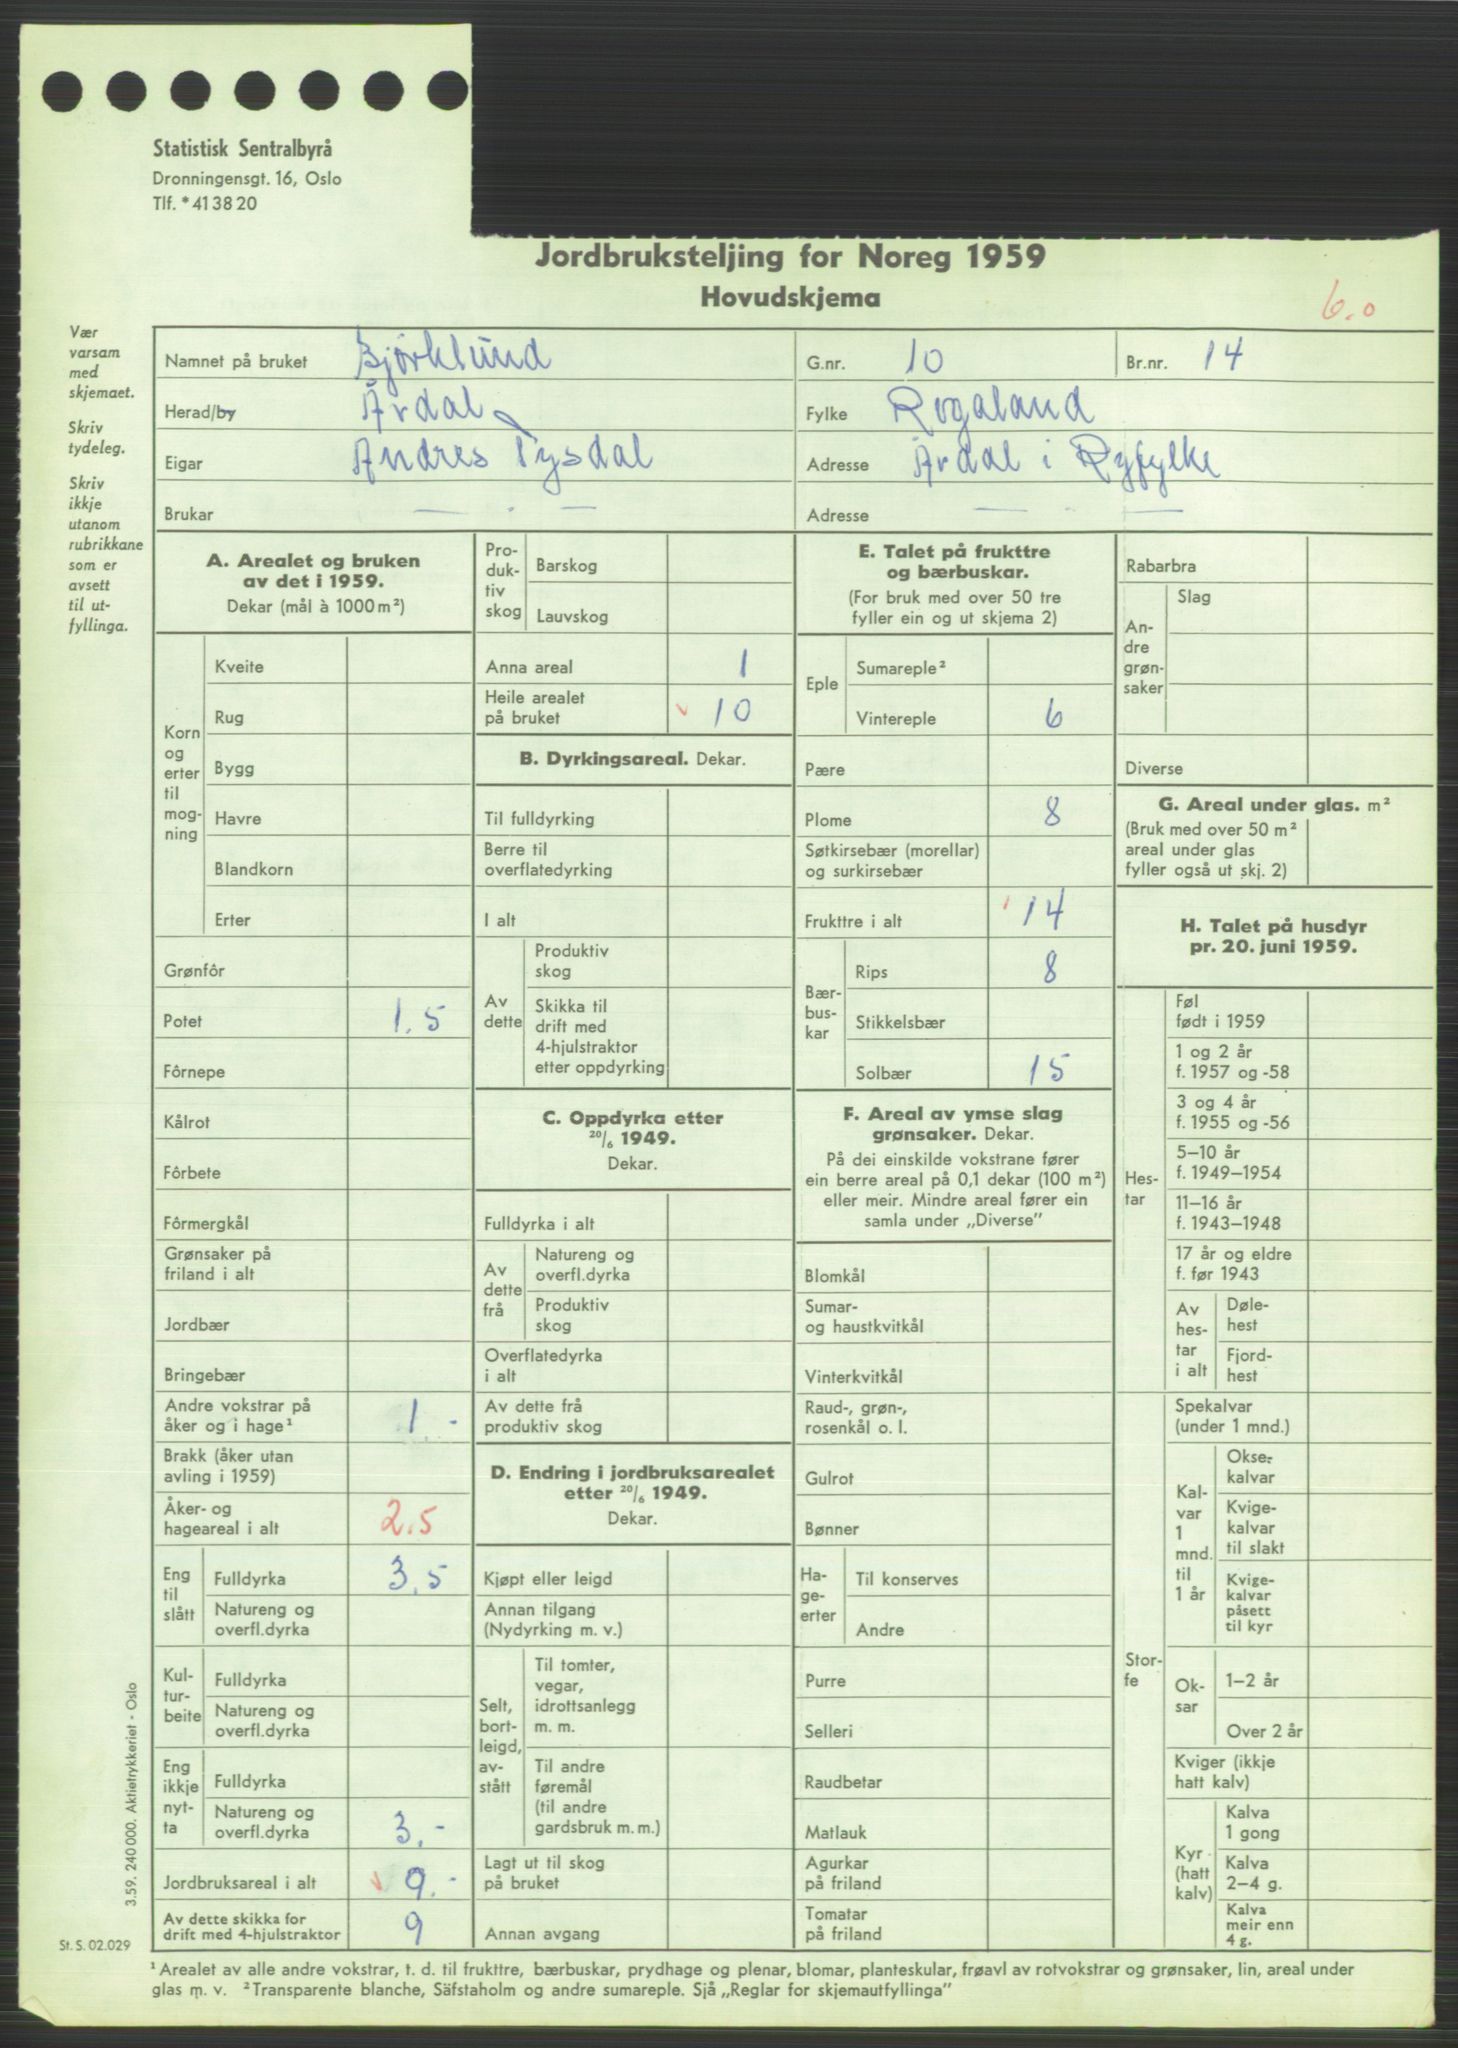 Statistisk Sentralbyrå
Dronningensgt. 16, Oslo
Tlf. *41 38 20
Jordbruksteljing for Noreg 1959
Hovudskjema
6.0
Vær
varsam
med
skjemaet.
Skriv
tydeleg.
Skriv
ikkje
utanom
rubrikkane
som er
avsett
til ut-
fyllinga.
Namnet på bruket Bjørklund G.nr. 10 Br.nr. 14
Herad/by Årdal Fylke Rogaland
Eigar Andres Tysdal Adresse Årdal i Ryfylke
Brukar — . — Adresse — . —
A. Arealet og bruken
av det i 1959.
Dekar (mål à 1000 m²)
Korn
og
erter
til
mog-
ning
Kveite
Rug
Bygg
Havre
Blandkorn
Erter
Grønfôr
Potet 1,5
Fôrnepe
Kålrot
Fôrbete
Fôrmergkål
Grønsaker på
friland i alt
Jordbær
Bringebær
Andre vokstrar på
åker og i hage¹ 1.-
Brakk (åker utan
avling i 1959)
Åker- og
hageareal i alt 2.5
Eng
til
slått
Fulldyrka 3,5
Natureng og
overfl.dyrka
Kul-
tur-
beite
Fulldyrka
Natureng og
overfl.dyrka
Eng
ikkje
nyt-
ta
Fulldyrka
Natureng og
overfl.dyrka 3.-
Jordbruksareal i alt 9.-
Av dette skikka for
drift med 4-hjulstraktor 9
Pro-
duk-
tiv
skog
Barskog
Lauvskog
Anna areal 1
Heile arealet
på bruket 10
B. Dyrkingsareal. Dekar.
Til fulldyrking
Berre til
overflatedyrking
I alt
Av
dette
Produktiv
skog
Skikka til
drift med
4-hjulstraktor
etter oppdyrking
C. Oppdyrka etter
20/6 1949.
Dekar.
Fulldyrka i alt
Av
dette
frå
Natureng og
overfl.dyrka
Produktiv
skog
Overflatedyrka
i alt
Av dette frå
produktiv skog
D. Endring i jordbruksarealet
etter 20/6 1949.
Dekar.
Kjøpt eller leigd
Annan tilgang
(Nydyrking m. v.)
Selt,
bort-
leigd,
av-
stått
Til tomter,
vegar,
idrottsanlegg
m. m.
Til andre
føremål
(til andre
gardsbruk m. m.)
Lagt ut til skog
på bruket
Annan avgang
E. Talet på frukttre
og bærbuskar.
(For bruk med over 50 tre
fyller ein og ut skjema 2)
Eple
Sumareple²
Vintereple 6
Pære
Plome 8
Søtkirsebær (morellar)
og surkirsebær
Frukttre i alt 14
Bær-
bus-
kar
Rips 8
Stikkelsbær
Solbær 15
F. Areal av ymse slag
grønsaker. Dekar.
På dei einskilde vokstrane fører
ein berre areal på 0,1 dekar (100 m²)
eller meir. Mindre areal fører ein
samla under „Diverse”
Blomkål
Sumar-
og haustkvitkål
Vinterkvitkål
Raud-, grøn-,
rosenkål o. l.
Gulrot
Bønner
Ha-
ge-
erter
Til konserves
Andre
Purre
Selleri
Raudbetar
Matlauk
Agurkar
på friland
Tomatar
på friland
Rabarbra
An-
dre
grøn-
saker
Slag
Diverse
G. Areal under glas. m²
(Bruk med over 50 m²
areal under glas
fyller også ut skj. 2)
H. Talet på husdyr
pr. 20. juni 1959.
Hes-
tar
Føl
født i 1959
1 og 2 år
f. 1957 og -58
3 og 4 år
f. 1955 og -56
5–10 år
f. 1949–1954
11–16 år
f. 1943–1948
17 år og eldre
f. før 1943
Av
hes-
tar
i alt
Døle-
hest
Fjord-
hest
Stor-
fe
Spekalvar
(under 1 mnd.)
Kal-
var
1
mnd.
til
1 år
Okse-
kalvar
Kvige-
kalvar
til slakt
Kvige-
kalvar
påsett
til kyr
Ok-
sar
1–2 år
Over 2 år
Kviger (ikkje
hatt kalv)
Kyr
(hatt
kalv)
Kalva
1 gong
Kalva
2–4 g.
Kalva
meir enn
4 g.
3.59. 240 000. Aktietrykkeriet - Oslo
St. S. 02.029
¹ Arealet av alle andre vokstrar, t. d. til frukttre, bærbuskar, prydhage og plenar, blomar, planteskular, frøavl av rotvokstrar og grønsaker, lin, areal under
glas m. v. ² Transparente blanche, Säfstaholm og andre sumareple. Sjå „Reglar for skjemautfyllinga”